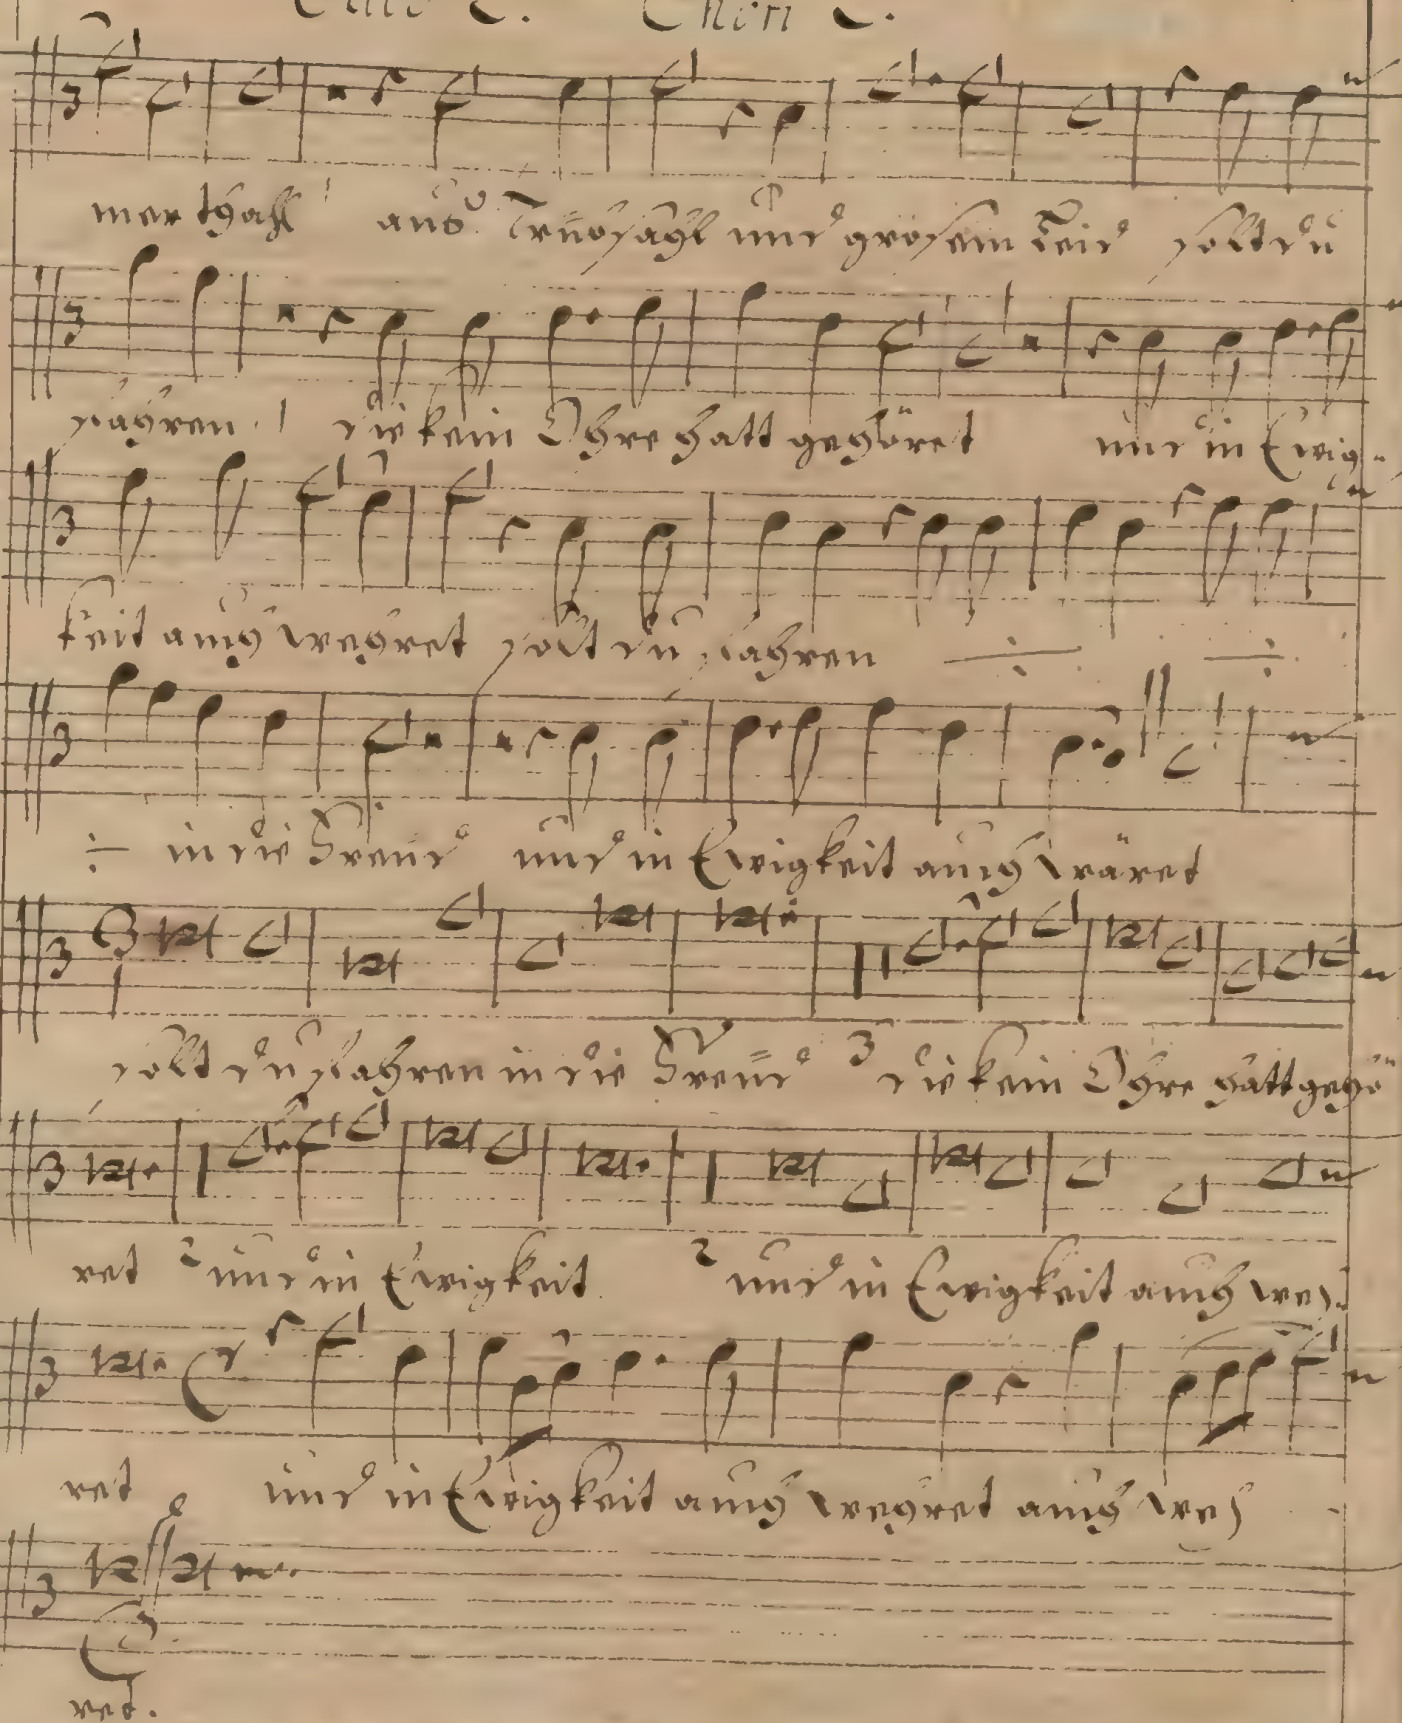 Chori 2.
mer thall aus Trübsahl und großem Leid solt du
fahren. die kein Ohre hatt gehöret und in Ewig-
keit auch wehret solt du fahren
in die Freud und in Ewigkeit auch wäret
solt du fahren in die Freud 3 die kein Ohre hatt gehö
ret 2 und in Ewigkeit 2 und in Ewigkeit auch weh
ret und in Ewigkeit auch wehret auch weh
ret.